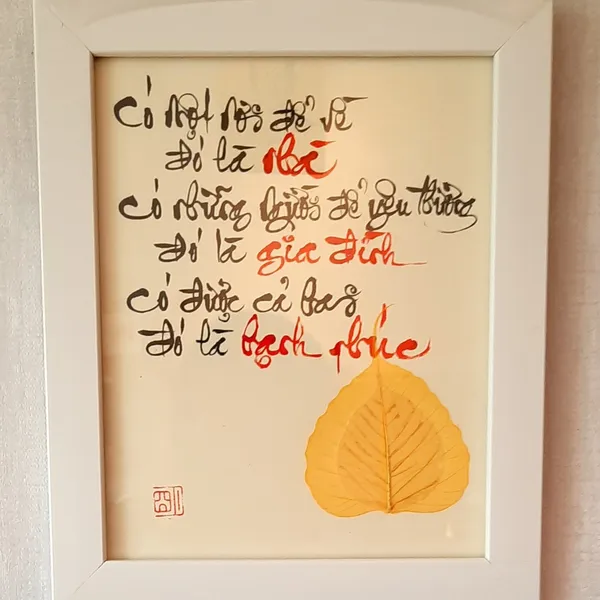 Có một nơi để về
Đó là nhà
Có những người để yêu thương
Đó là gia đình
Có được cả hai
Đó là hạnh phúc